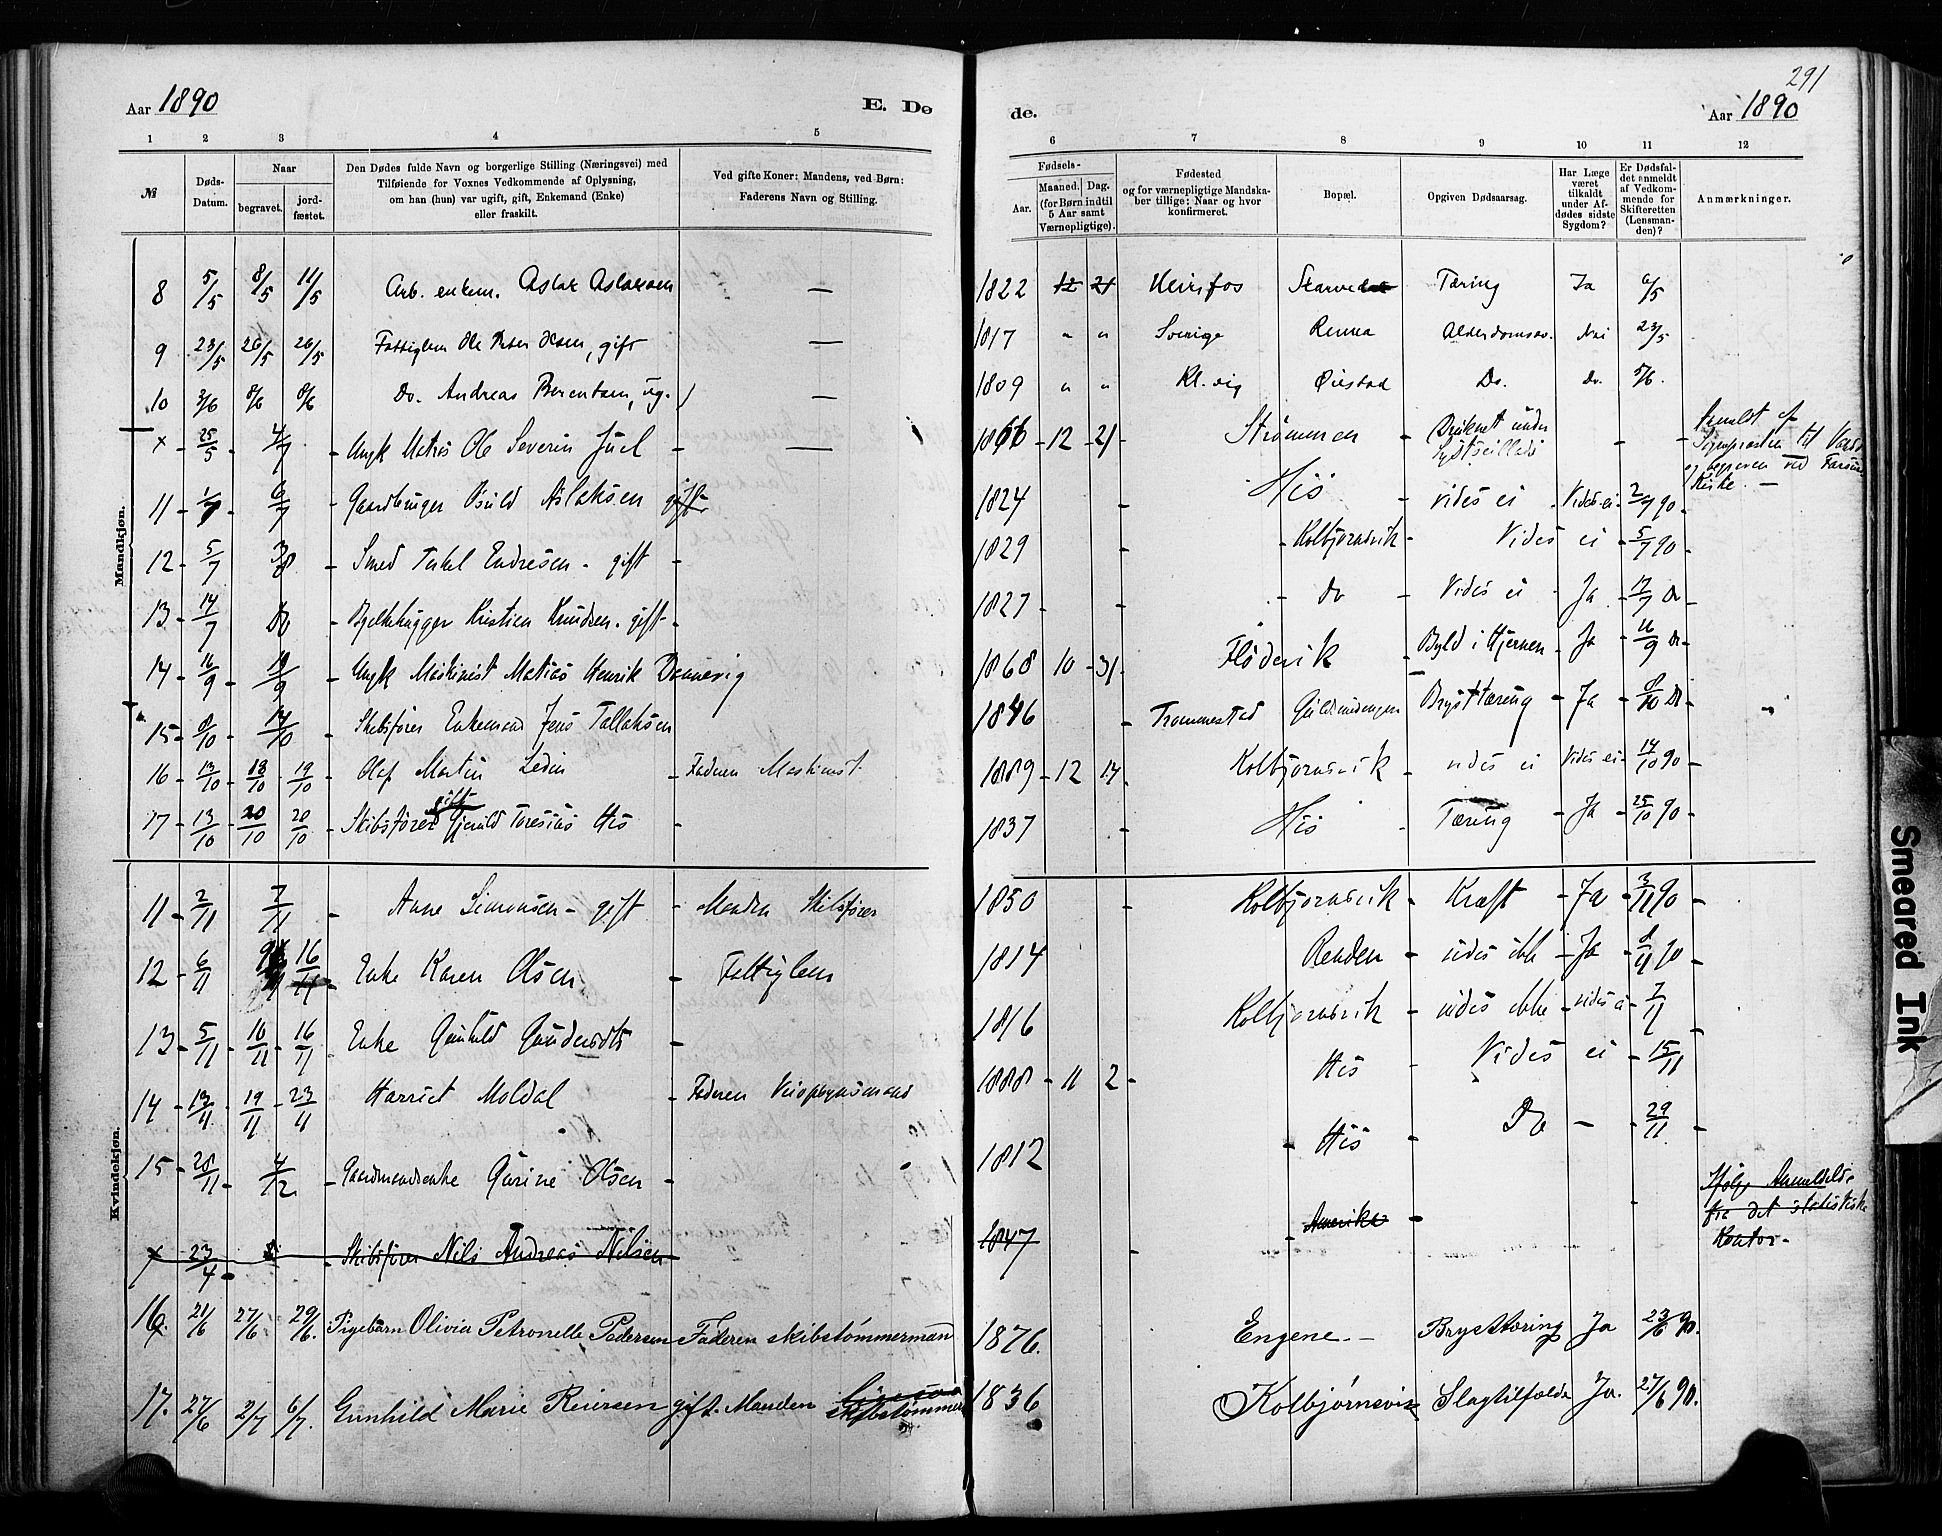 291
Aar 1890 E. Dø de. Aar 1890
1 2 3 4 5 6 7 8 9 10 11 12
№ Døds-Datum. Naar begravet. jordfæstet. Den Dødes fulde Navn og borgerlige Stilling (Næringsvei) med Tilføiende for Voxnes Vedkommende af Oplysning, om han (hun) var ugift, gift, Enkemand (Enke) eller fraskilt. Ved gifte Koner: Mandens, ved Børn: Faderens Navn og Stilling. Fødsels- Aar. Maaned. Dag. (for Børn indtil 5 Aar samt Værnepligtige). Fødested og for værnepligtige Mandskaber tillige: Naar og hvor konfirmeret. Bopæl. Opgiven Dødsaarsag. Har Læge været tilkaldt under Afdødes sidste Sygdom? Er Dødsfaldet anmeldt af Vedkommende for Skifteretten (Lensmanden)? Anmærkninger.
Mandkjøn.
8 5/5 8/5 11/5 Arb. enkem. Aslak Aslaksen — 1822 12 21 Tæring Ja 6/5
9 23/5 26/5 26/5 Fattiglem Ole Peter Olsen, gift — 1817 " " Sverige Renna Alderdomssv. Nei 23/5
10 3/6 8/6 8/6 Do. Andreas Berentsen, ug. — 1809 " " Kl.vig Øiestad Do. Do. 5/6.
x 25/5 4/7 Ungk Matros Ole Severin Juel — 1866 12 21 Strømmen Druknet under - - Anmeldt af Sogneprästen til Vanse og begraven ved Farsund Kirke. —
11 1/7 6/7 Gaardbruger Osuld Aslaksen gift 1824 His vides ei Vides ei 2/7 90
12 5/7 3/8 Smed Terkel Endresen - gift 1829 Kolbjornsvik Vides ei 5/7 90
13 14/7 Do Bjelkehugger Kristien Knudsen. gift 1827 Do Vides ei Ja 17/7 Do
14 16/9 19/9 Ungk Maskinist Matias Henrik Dannevig 1868 10 31 Flødevik Byld i Hjernen Ja 16/9 Do
15 8/10 14/10 Skibsfører Enkemand Jens Tallaksen 1846 Trommestad Guldsmedengen Brysttæring Ja 8/10 Do
16 13/10 18/10 19/10 Olaf Martin Ledin Faderen Maskinist 1889 12 17 Kolbjornsvik vides ei Vides ei 14/10 90
17 13/10 20/10 20/10 Skibsfører gift Gjeruld Toresius His 1837 His Tæring Ja 25/10 90
Kvindekjøn.
11 2/11 7/11 Anne Simonsen - gift Manden Skibsfører 1850 Kolbjornsvik Kræft Ja 3/11 90
12 6/11 16/11 Enke Karen Olsen Fattiglem 1814 Renden vides ikke Ja 8/11 90
13 5/11 10/11 16/11 Enke Gunhild Gundersdtr 1816 Kolbjornsvik vides ikke vides ei 7/11
14 13/11 19/11 23/11 Harriet Moldal Faderen Veiopsynsmand 1888 11 2 His Vides ei 15/11
15 28/11 4/12 Gaardmandsenke Gurine Olsen 1812 His Do — 29/11
x 23/4 Skibsfører Nils Andreas Nilsen 1847 Amerika Ifølge Anmeldelse fra det statistiske Kontor.
16 21/6 27/6 29/6. Pigebarn Olivia Petronelle Pedersen Faderen skibstømmermand 1876. Engene. — Brysttæring Ja 23/6 90.
17. 27/6 2/7 6/7. Gunhild Marie Reiersen gift. Manden skibstømmerm 1836 Kolbjørnsvik Slagtilfælde Ja. 27/6 90.
Smeared Ink